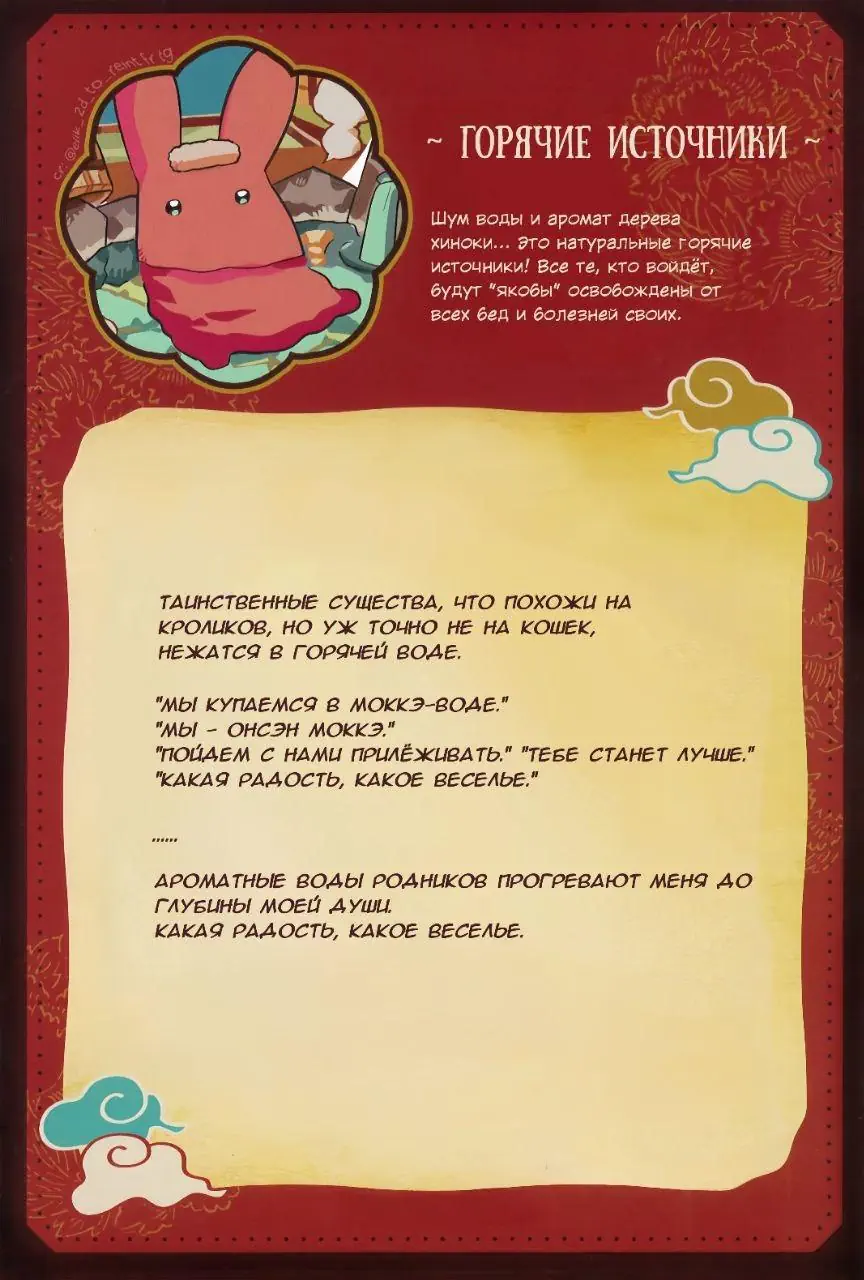 ~ ГОРЯЧИЕ ИСТОЧНИКИ ~
Шум воды и аромат дерева
хиноки... Это натуральные горячие
источники! Все те, кто войдёт,
будут "якобы" освобождены от
всех бед и болезней своих.
ТАИНСТВЕННЫЕ СУЩЕСТВА, ЧТО ПОХОЖИ НА
КРОЛИКОВ, НО УЖ ТОЧНО НЕ НА КОШЕК,
НЕЖАТСЯ В ГОРЯЧЕЙ ВОДЕ.
"МЫ КУПАЕМСЯ В МОККЭ-ВОДЕ."
"МЫ - ОНСЭН МОККЭ."
"ПОЙДЕМ С НАМИ ПРИЛЁЖИВАТЬ." "ТЕБЕ СТАНЕТ ЛУЧШЕ."
"КАКАЯ РАДОСТЬ, КАКОЕ ВЕСЕЛЬЕ."
......
АРОМАТНЫЕ ВОДЫ РОДНИКОВ ПРОГРЕВАЮТ МЕНЯ ДО
ГЛУБИНЫ МОЕЙ ДУШИ.
КАКАЯ РАДОСТЬ, КАКОЕ ВЕСЕЛЬЕ.